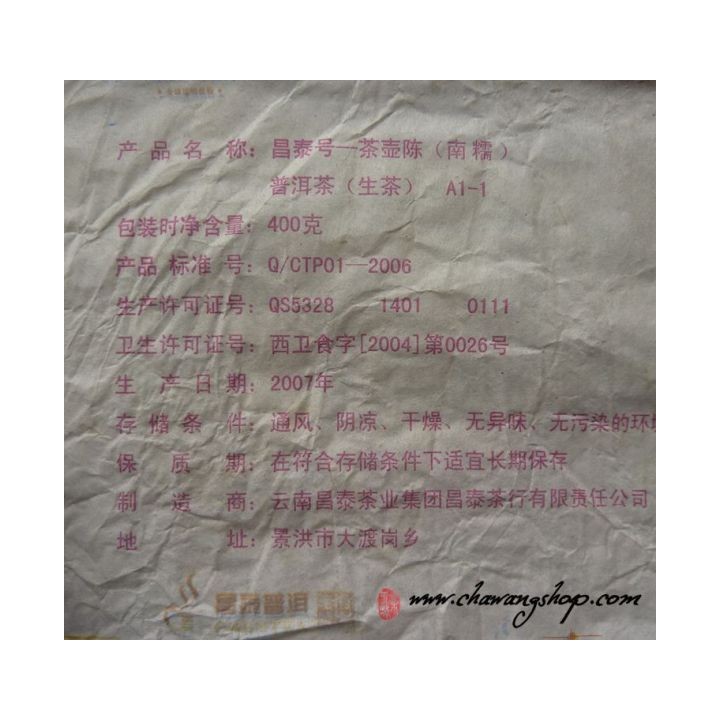 产品名称：昌泰号—茶壶陈（南糯）
普洱茶（生茶） A1-1
包装时净含量：400克
产品标准号：Q/CTP01—2006
生产许可证号：QS5328 1401 0111
卫生许可证号：西卫食字[2004]第0026号
生产日期：2007年
存储条件：通风、阴凉、干燥、无异味、无污染的环境
保质期：在符合存储条件下适宜长期保存
制造商：云南昌泰茶业集团昌泰茶行有限责任公司
地址：景洪市大渡岗乡
昌泰普洱
www.chawangshop.com